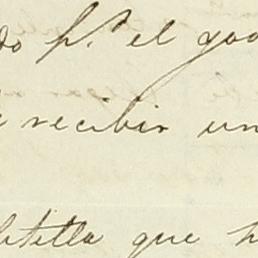 do pr. el goo
recibir un
letilla que h